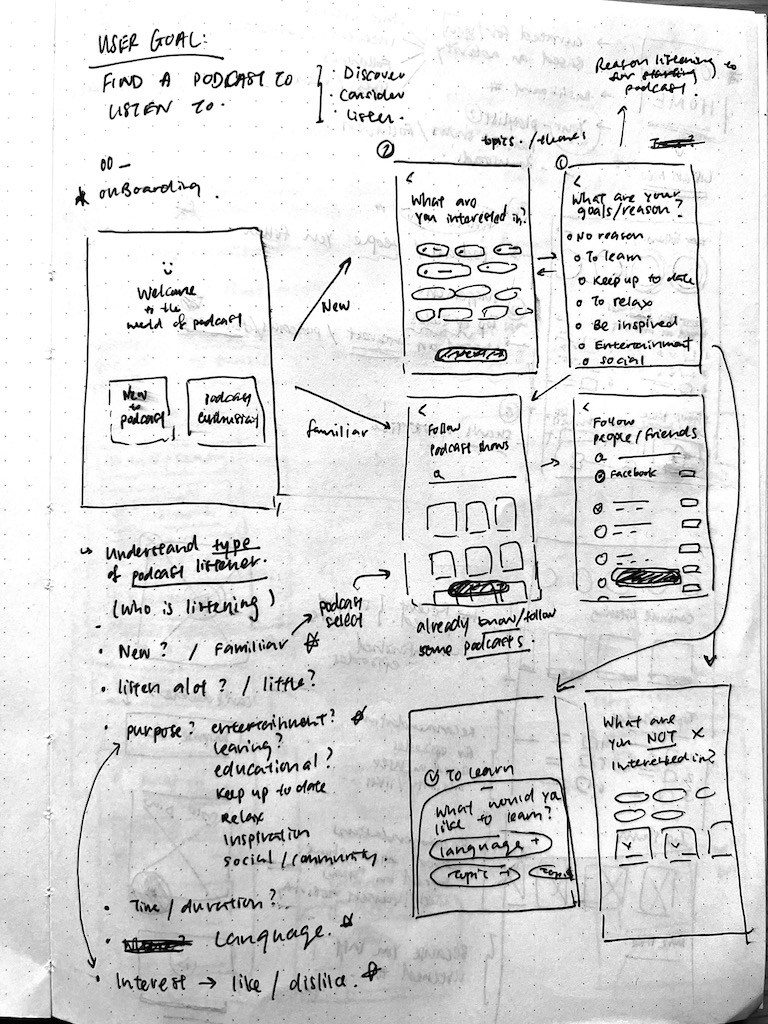 USER GOAL:
FIND A PODCAST TO
LISTEN TO.
· Discover
· Consider
· Listen.
Reason listening to
for starting
podcast.
topics / themes
onBoarding
Welcome
to the
world of podcast
New
to
podcast
Podcast
Enthusiast
New
Familiar
2
What are
you interested in?
1
What are your
goals/reason?
No reason
To learn
Keep up to date
To relax
Be inspired
Entertainment
Social
Follow
Podcast shows
Follow
people/friends
Facebook
already know/follow
some podcasts.
Understand type
of podcast listener.
(who is listening)
podcast
select
· New? / Familiar
· listen alot? / little?
· purpose? entertainment?
learing?
educational?
keep up to date
Relax
Inspiration
social / community.
· Time / duration?
· Language.
· Interest → like / dislike.
To Learn
What would you
like to learn?
language +
topic →
What are
you NOT
Interested in?
X